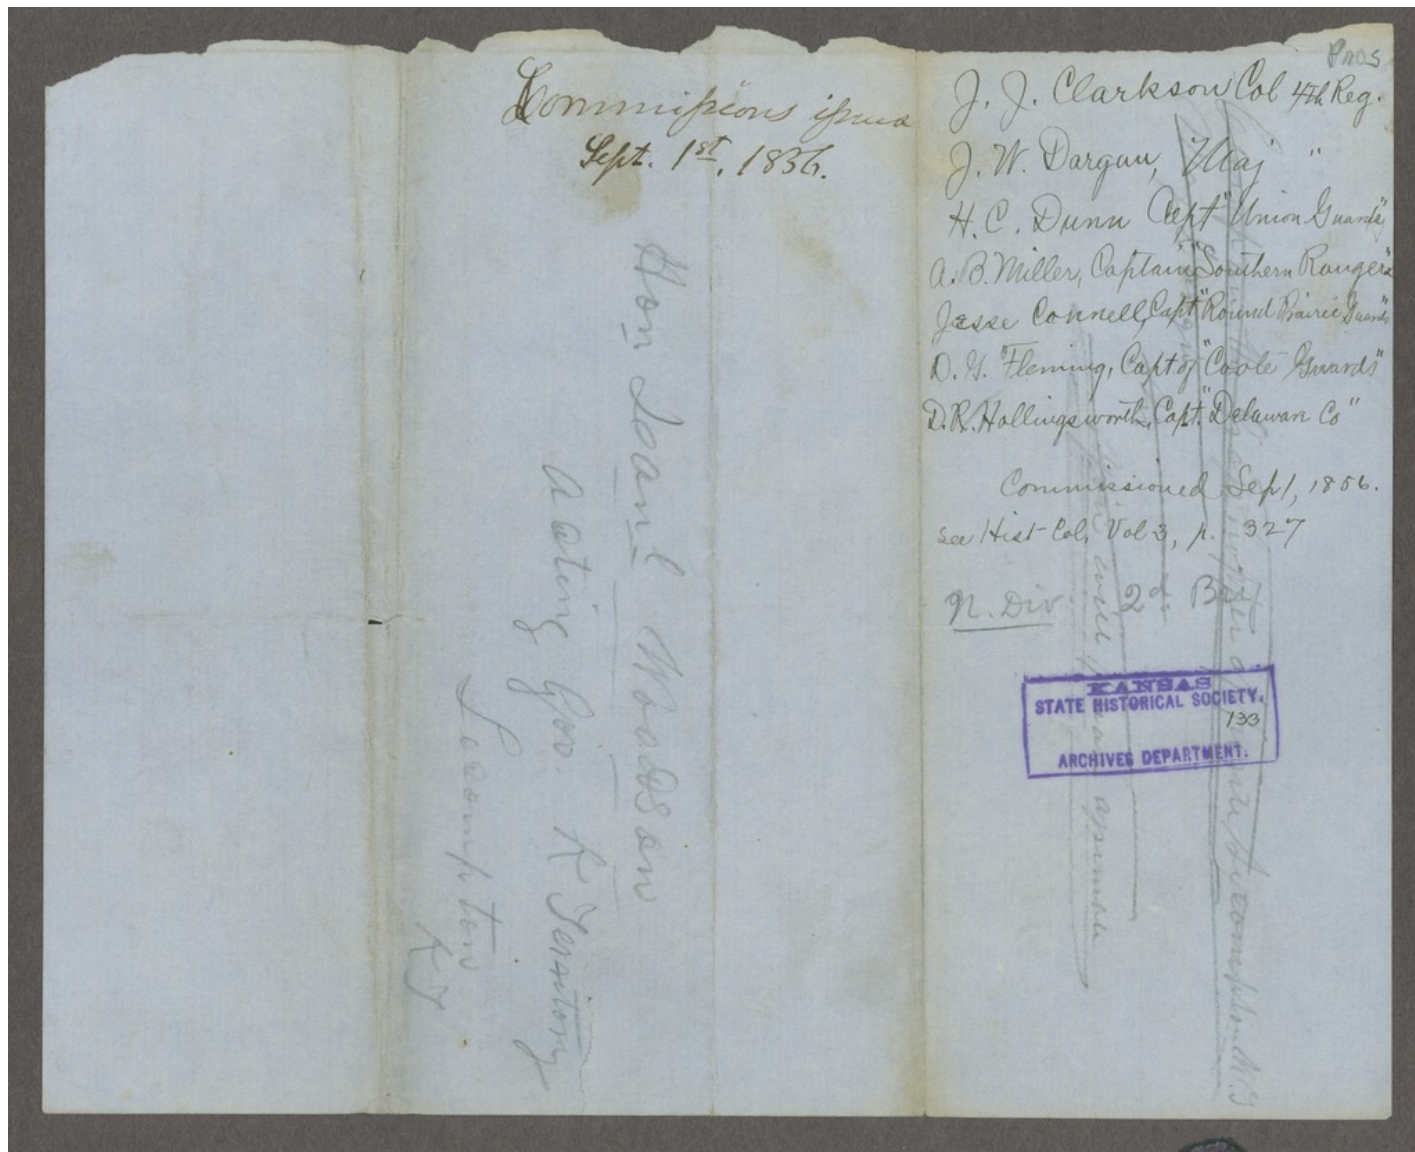 Commissions issued
Sept. 1st, 1856.
Hon Danl Woodson
Acting Gov. K Territory
Lecompton
K T
J. J. Clarkson Col 4th Reg.
J. W. Dargan, Maj "
H. C. Dunn Capt "Union Guards"
A. B. Miller, Captain "Southern Rangers"
Jesse Connell, Capt "Round Prairie Guards"
D. G. Fleming, Capt of "Coote Guards"
D. R. Hollingsworth, Capt. "Delawan Co"
Commissioned Sep 1, 1856.
see Hist Col, Vol 3, p. 327
N. Div 2d B
KANSAS
STATE HISTORICAL SOCIETY.
133
ARCHIVES DEPARTMENT.